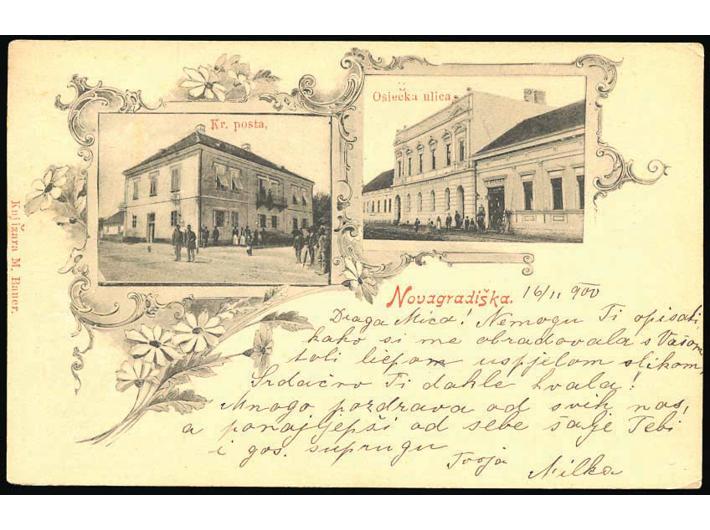 Kr. pošta,
Osiečka ulica
Knjižara M. Bauer.
Novagradiška. 16/11 900
Draga Mica! Nemogu Ti opisati
kako si me obradovala s Vašom
toli liepom uspjelom slikom,
Srdačno Ti dakle hvala!
Mnogo pozdrava od svih nas,
a ponajljepši od sebe šalje Tebi
i gos. suprugu
Tvoja Milka